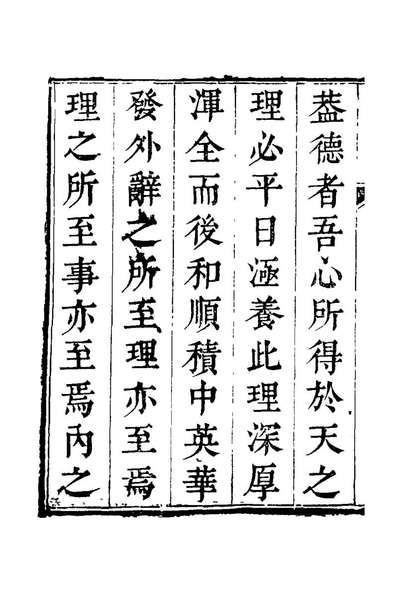 葢德者吾心所得於天之
理必平日涵養此理深厚
渾全而後和順積中英華
發外辭之所至理亦至焉
理之所至事亦至焉內之